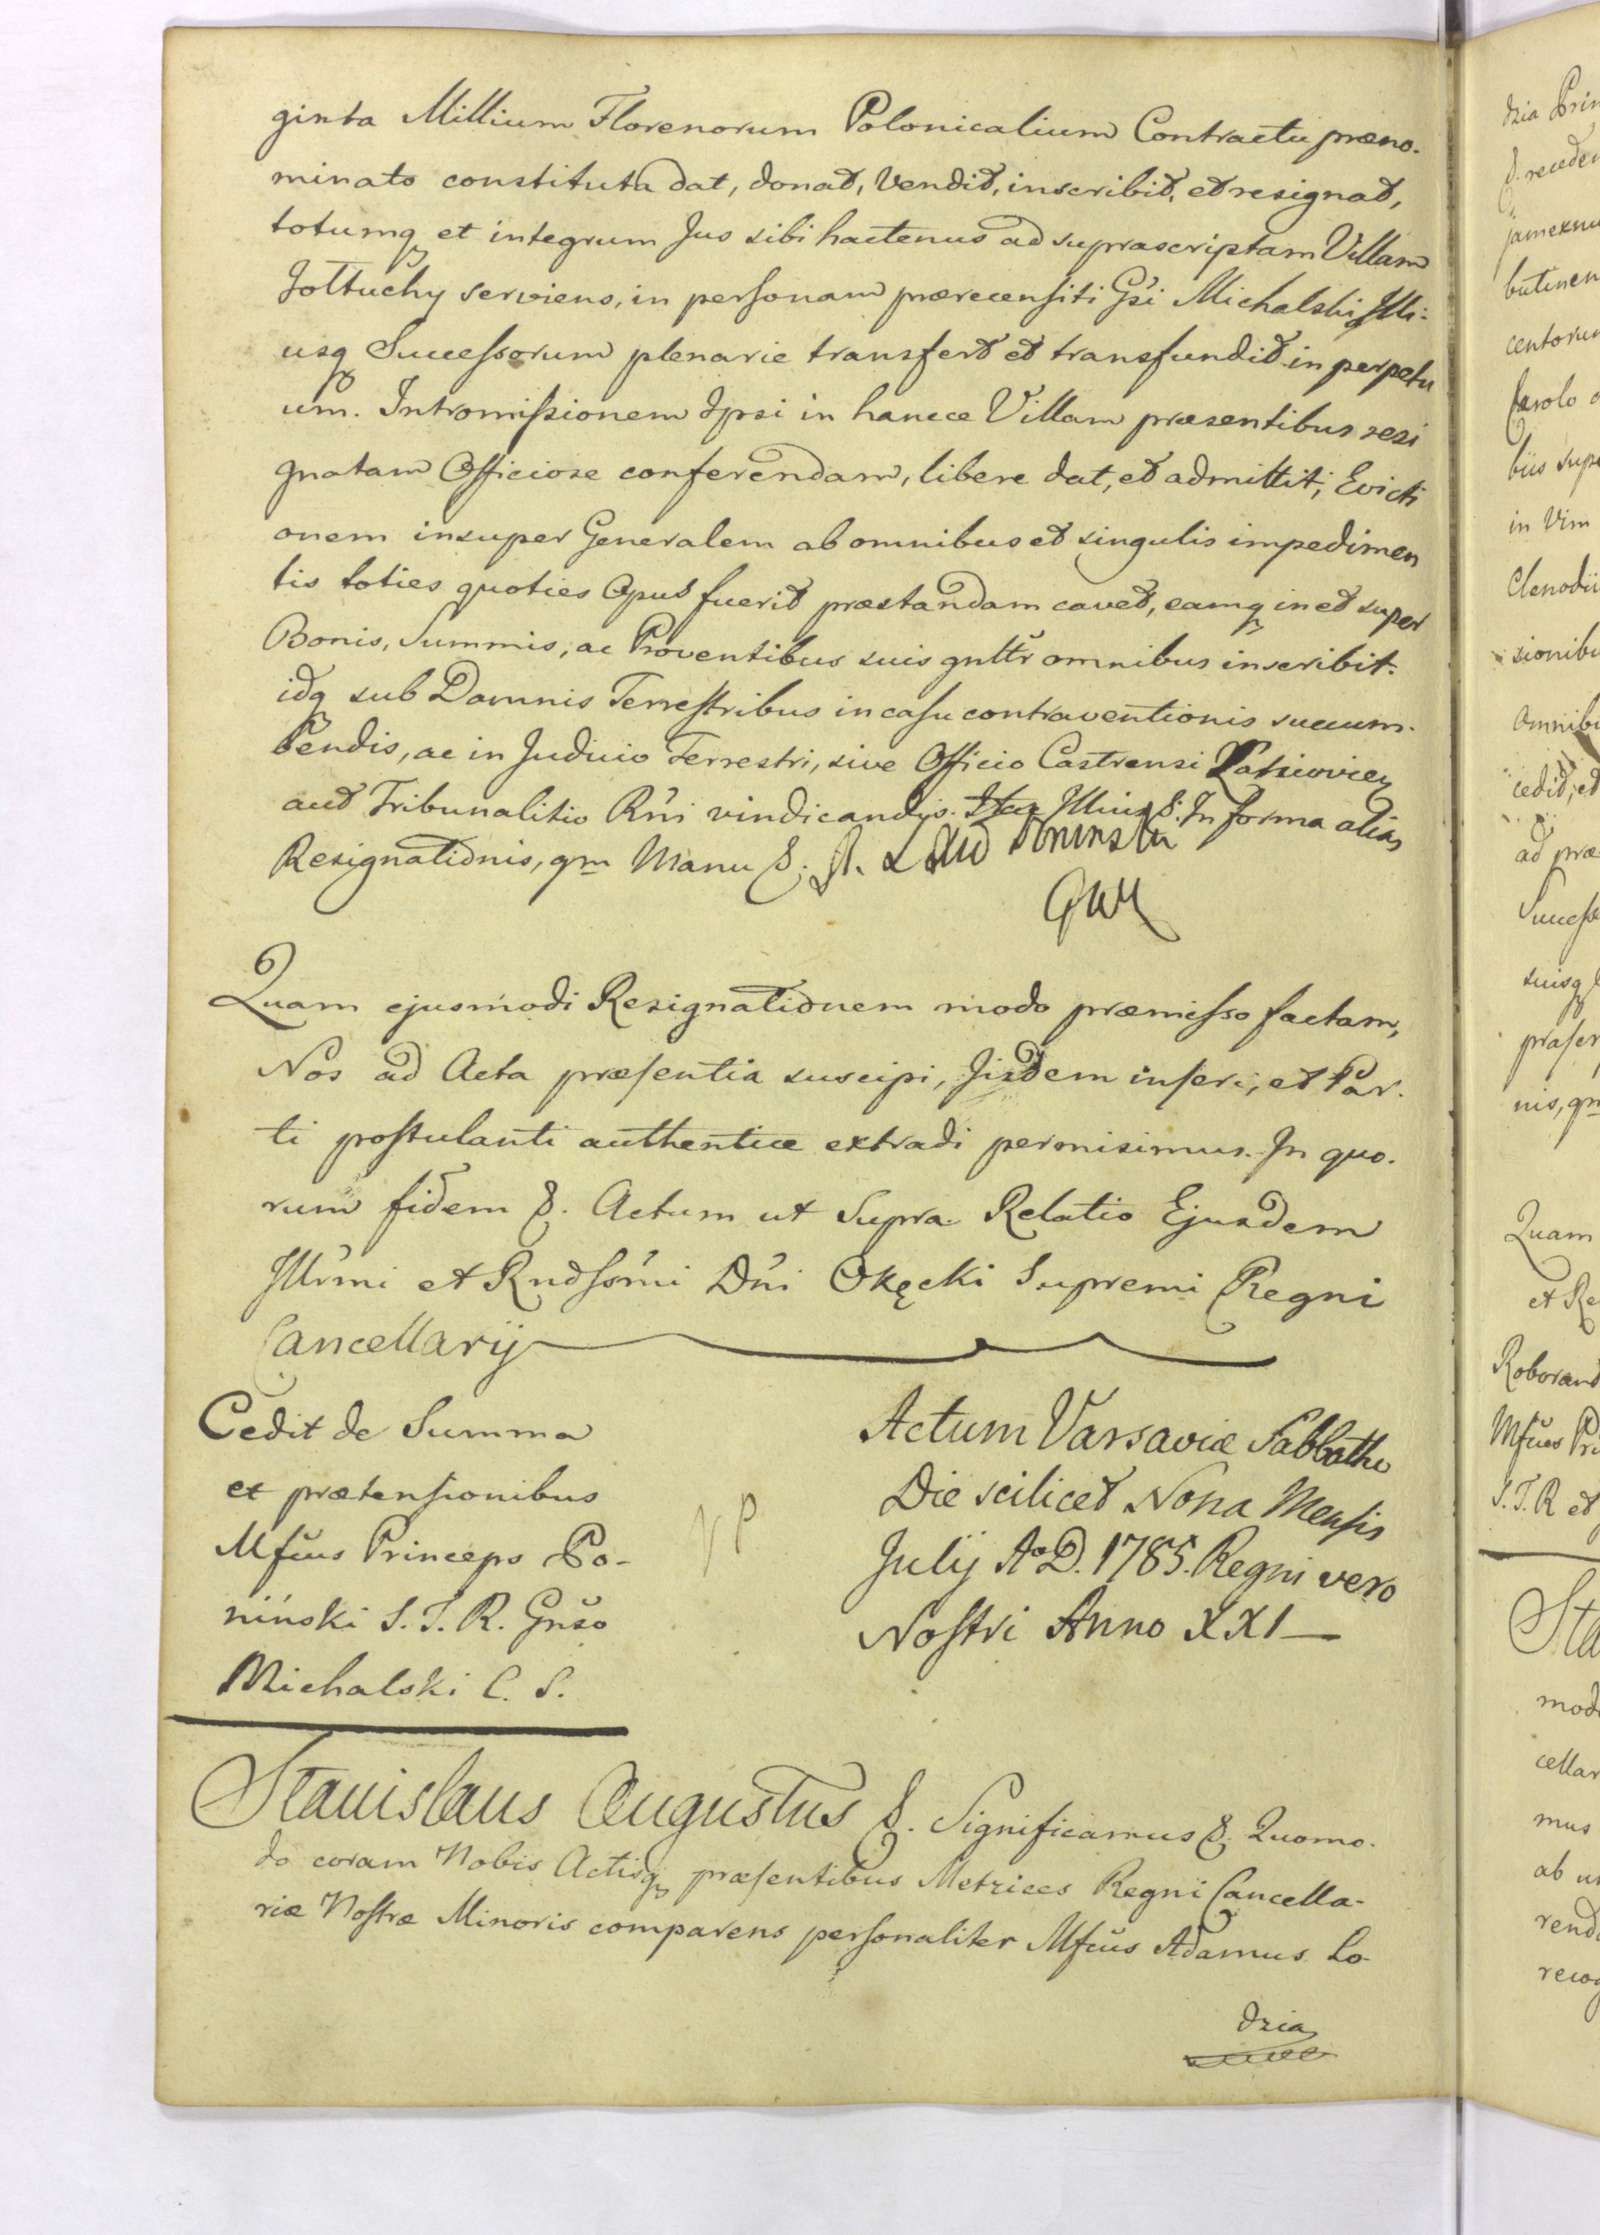 ginta Millium Florenorum Polonicalium Contractu præno-
minato constituta dat, donat, Vendit, inscribit, et resignat,
totumq et integrum Jus sibi hactenus ad suprascriptam Villam
Jołtuchy serviens, in personam prærecensiti Gsi Michalski Illi-
usq Successorum plenarie transfert et transfundit in perpetu
um. Intromissionem Ipsi in hancce Villam præsentibus resi
gnatam Officiose conferendam, libere dat, et admittit, Evicti
onem insuper Generalem ab omnibus et singulis impedimen
tis toties quoties Opus fuerit præstandam cavet, eamq in et super
Bonis, Summis, ac Proventibus suis gnltr omnibus inscribit.
idq sub Damnis Terrestribus in casu contraventionis succum-
bendis, ac in Judicio Terrestri, sive Officio Castrensi
aut Tribunalitio Rni vindicandis. Illius &. In forma alias
Resignationis, qm Manu &. A. Poninski
Quam ejusmodi Resignationem modo præmisso factam,
Nos ad Acta præsentia suscipi, Jisdem inseri, et Par-
ti postulanti authentice extradi permisimus. In quo-
rum fidem &. Actum ut Supra. Relatio Ejusdem
Illrmi et Rndssmi Dni Okęcki Supremi Regni
Cancellarij
Cedit de Summa
et prætensionibus
Mfcus Princeps Po-
niński S. T. R. Gnso
Michalski C. S.
VP
Actum Varsaviæ Sabbatho
Die scilicet Nona Mensis
Julij Ao D. 1785. Regni vero
Nostri Anno XXI
Stanislaus Augustus &. Significamus &. Quomo-
do coram Nobis Actisq præsentibus Metrices Regni Cancella-
riæ Nostræ Minoris comparens personaliter Mfcus Adamus Lo-
dzia